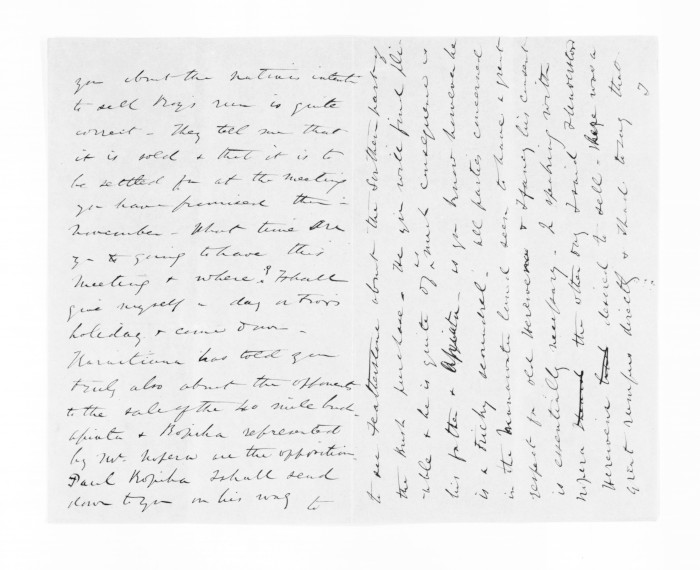 you about the natives intent
to sell Roy's run is quite
correct - They tell me that
it is sold & that it is to
be settled for at the meeting
you have promised them in
November - What time are
you going to have this
meeting & where? I shall
give myself a day or two's
holeday & come down -
Karaitiana has told you
truly also about the opponents
to the sale of the 40 mile bush.
Apiata & Ropiha represented
by Mr. Nopera are the opposition.
Paul Ropiha I shall send
down to you on his way to
to see Featherstone about the Southern part of
the Bush purchase. He you will find pli-
-able & he is quite of as much consequence as
his father & Apiata - as you know however he
is a fishy scoundrel - all parties concerned
in the Manawatu land seem to have a great
respect for old Hereweni & I fancy his consent
is essentially necessary. In speaking with
Nopera the other day I said I understood
Hereweni desired to sell - there was a
great rumpus directly & I had to say that
I